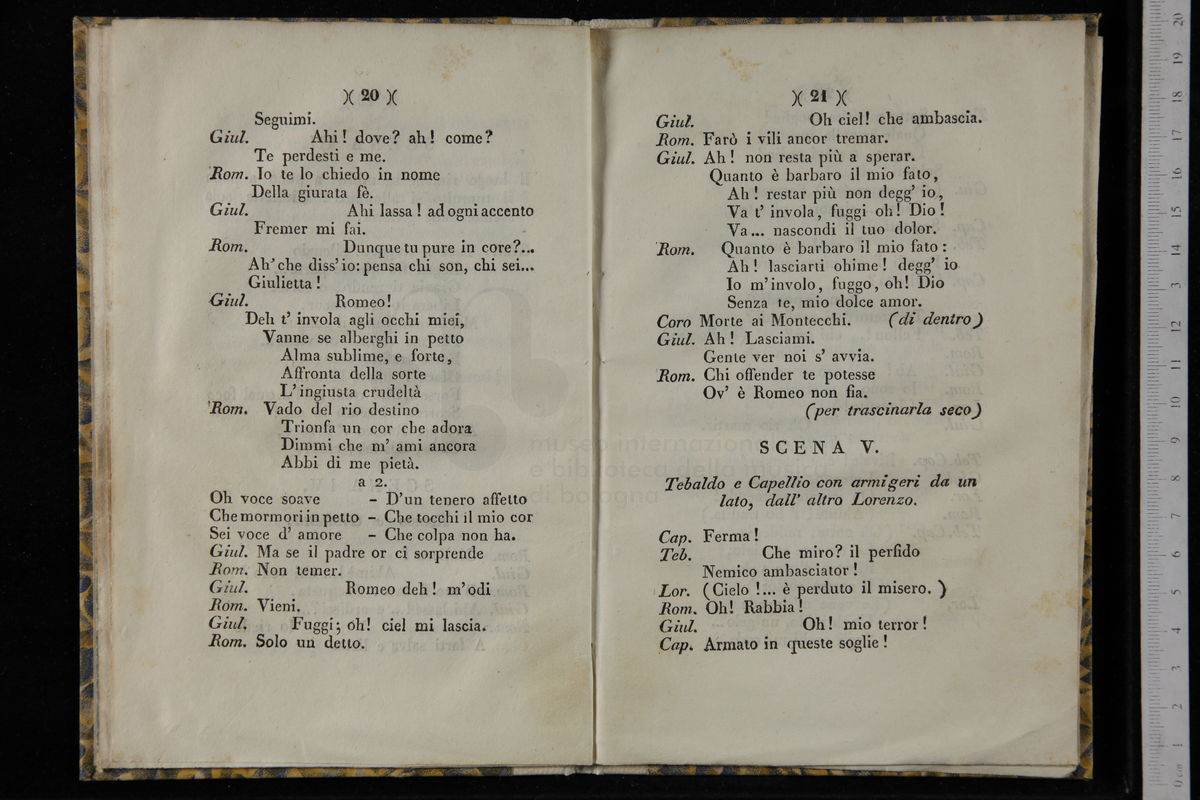 )( 20 )(
Seguimi.
Giul. Ahi! dove? ah! come?
Te perdesti e me.
Rom. Io te lo chiedo in nome
Della giurata fè.
Giul. Ahi lassa! ad ogni accento
Fremer mi fai.
Rom. Dunque tu pure in core?...
Ah' che diss' io: pensa chi son, chi sei...
Giulietta!
Giul. Romeo!
Deh t' invola agli occhi miei,
Vanne se alberghi in petto
Alma sublime, e forte,
Affronta della sorte
L' ingiusta crudeltà
Rom. Vado del rio destino
Trionfa un cor che adora
Dimmi che m' ami ancora
Abbi di me pietà.
a 2.
Oh voce soave – D'un tenero affetto
Che mormori in petto – Che tocchi il mio cor
Sei voce d' amore – Che colpa non ha.
Giul. Ma se il padre or ci sorprende
Rom. Non temer.
Giul. Romeo deh! m' odi
Rom. Vieni.
Giul. Fuggi; oh! ciel mi lascia.
Rom. Solo un detto.
)( 21 )(
Giul. Oh ciel! che ambascia.
Rom. Farò i vili ancor tremar.
Giul. Ah! non resta più a sperar.
Quanto è barbaro il mio fato,
Ah! restar più non degg' io,
Va t' invola, fuggi oh! Dio!
Va... nascondi il tuo dolor.
Rom. Quanto è barbaro il mio fato:
Ah! lasciarti ohime! degg' io
Io m' involo, fuggo, oh! Dio
Senza te, mio dolce amor.
Coro Morte ai Montecchi. (di dentro)
Giul. Ah! Lasciami.
Gente ver noi s' avvia.
Rom. Chi offender te potesse
Ov' è Romeo non fia.
(per trascinarla seco)
SCENA V.
Tebaldo e Capellio con armigeri da un
lato, dall' altro Lorenzo.
Cap. Ferma!
Teb. Che miro? il perfido
Nemico ambasciator!
Lor. (Cielo!... è perduto il misero.)
Rom. Oh! Rabbia!
Giul. Oh! mio terror!
Cap. Armato in queste soglie!
museo internazion
e biblioteca della musica
di bologna
0 cm 1 2 3 4 5 6 7 8 9 10 11 12 13 14 15 16 17 18 19 20